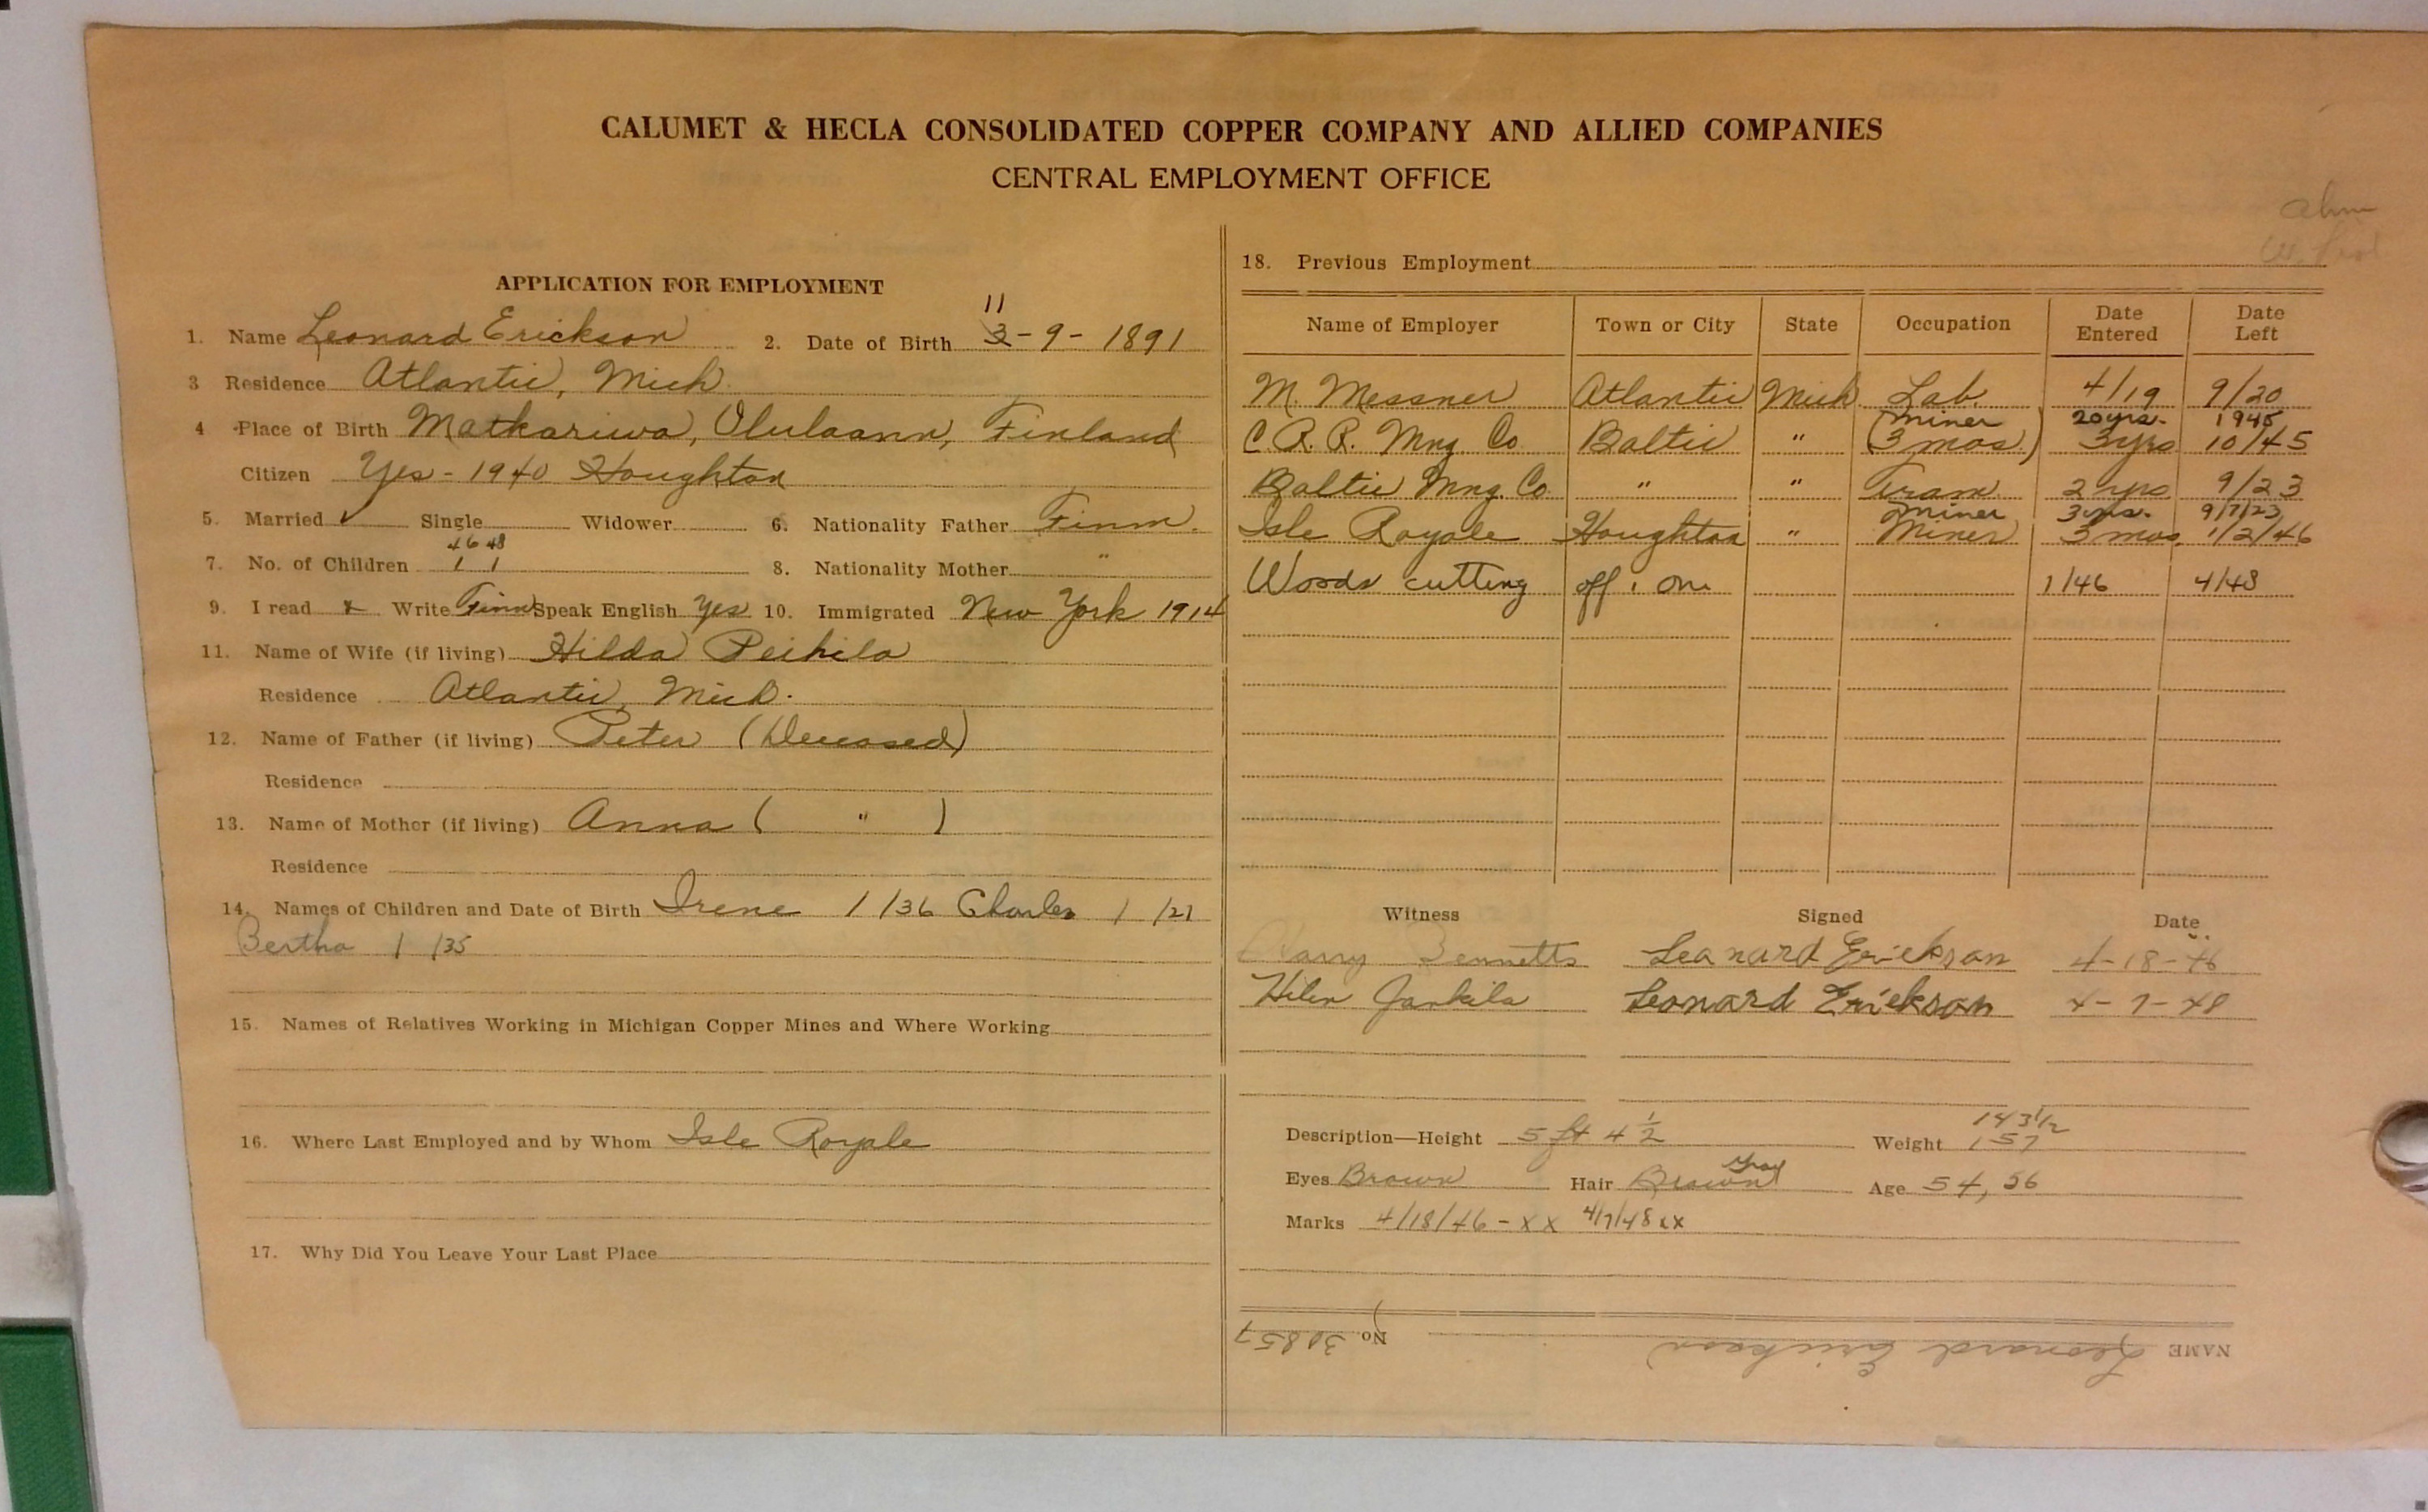 CALUMET & HECLA CONSOLIDATED COPPER COMPANY AND ALLIED COMPANIES
CENTRAL EMPLOYMENT OFFICE
APPLICATION FOR EMPLOYMENT
11
1. Name Leonard Erickson 2. Date of Birth 3-9-1891
3 Residence Atlantic, Mich.
4 Place of Birth Matkariwa, Ululaann, Finland
Citizen Yes - 1940 Houghton
5. Married ✓ Single Widower 6. Nationality Father Finn.
46 48
7. No. of Children 1 1 8. Nationality Mother "
9. I read x Write Finn Speak English Yes 10. Immigrated New York 1914
11. Name of Wife (if living) Hilda Peihila
Residence Atlantic, Mich.
12. Name of Father (if living) Peter (Deceased)
Residence
13. Name of Mother (if living) Anna ( " )
Residence
14. Names of Children and Date of Birth Irene 1/36 Charles 1/21
Bertha 1/35
15. Names of Relatives Working in Michigan Copper Mines and Where Working
16. Where Last Employed and by Whom Isle Royale
17. Why Did You Leave Your Last Place
18. Previous Employment
Name of Employer Town or City State Occupation Date Entered Date Left
M. Messner Atlantic Mich. Lab. 4/19 9/20
Miner 20 yrs. 1945
C.R.R. Mng. Co Baltic " (3 mos.) 3 yrs 10/45
Baltic Mng. Co " " Tram 2 yrs 9/23
Miner 3 yrs. 9/7/23
Isle Royale Houghton " Miner 3 mos. 1/2/46
Woods cutting off & on 1/46 4/48
Witness Signed Date
Harry Bennetts Leonard Erickson 4-18-46
Leonard Erickson 4-7-48
143 1/2
Description—Height 5 ft 4 1/2 Weight 157
Gray
Eyes Brown Hair Brown Age 54, 56
Marks 4/18/46 - xx 4/7/48 xx
NAME Leonard Erickson No. 30857